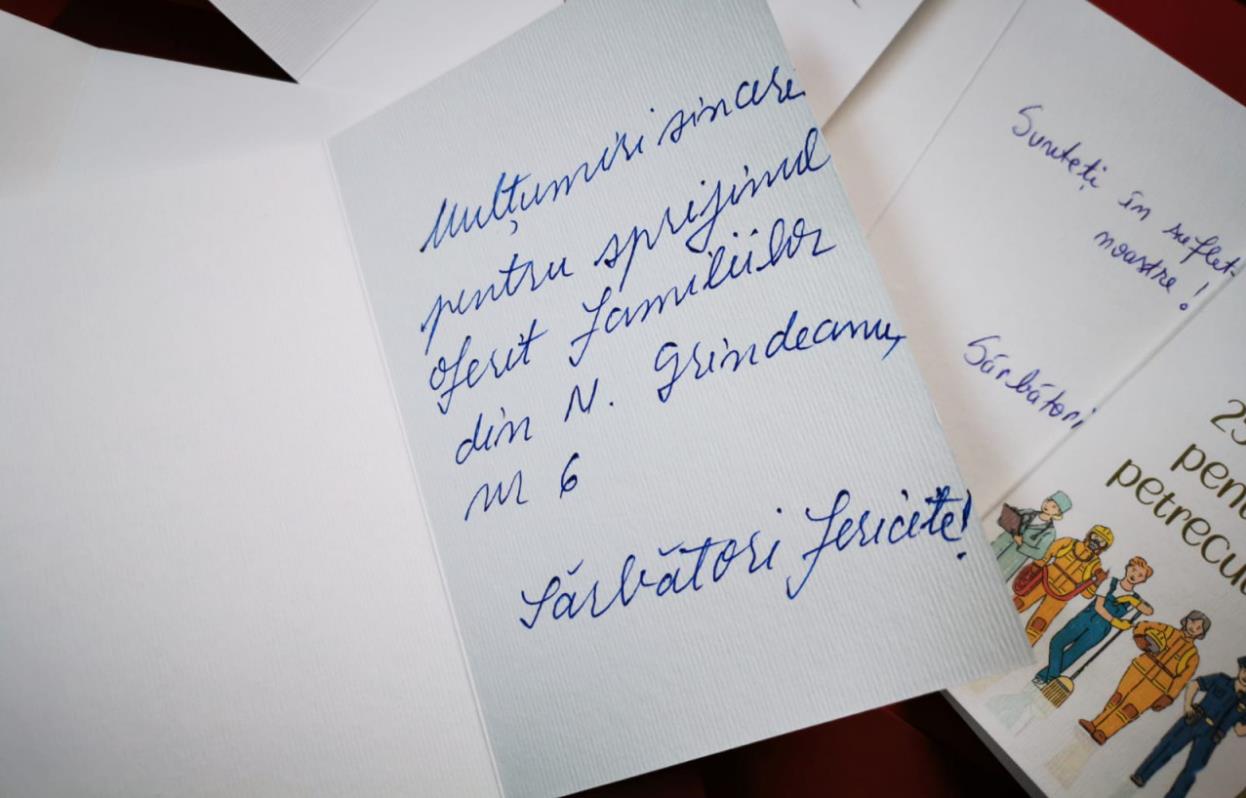 Mulțumiri sincere
pentru sprijinul
oferit familiilor
din N. Grindeanu,
nr 6
Sărbători fericite!
Sunteți în suflet
noastre!
Sărbători
25
pent
petrecu